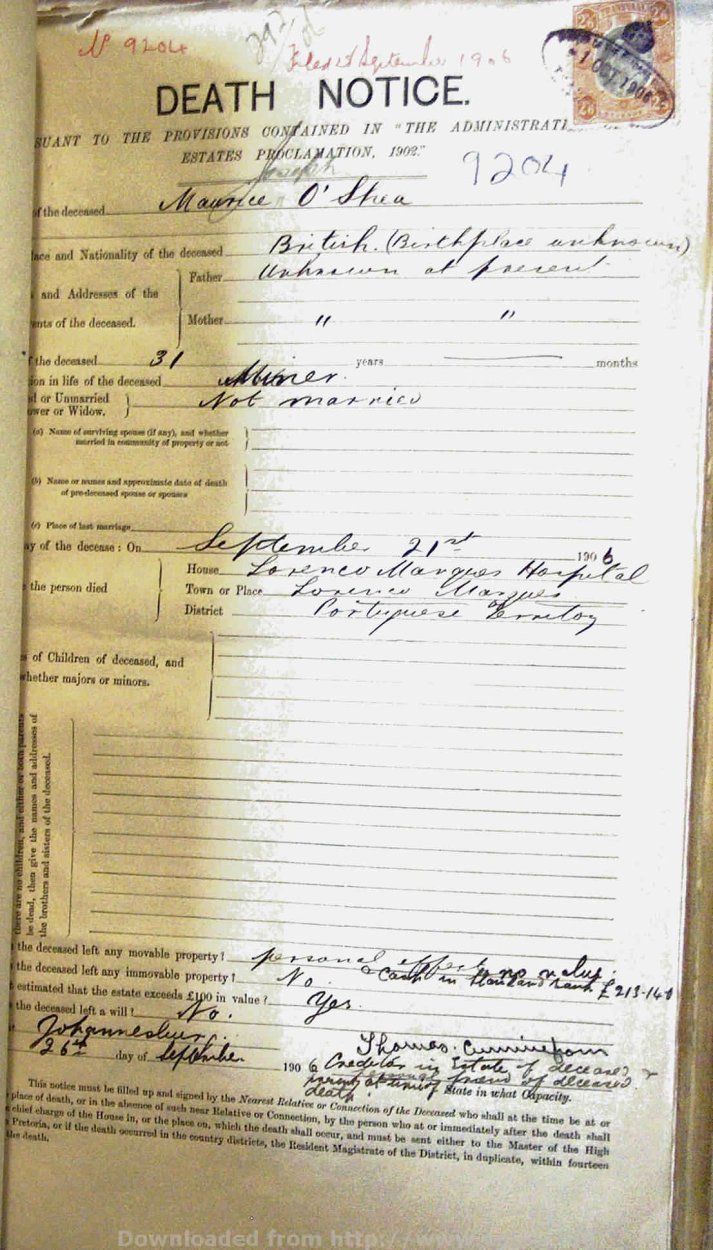 No 9204
Filed 28 September 1906
DEATH NOTICE.
SUANT TO THE PROVISIONS CONTAINED IN "THE ADMINISTRATI
ESTATES PROCLAMATION, 1902."
9204
Joseph
f the deceased Maurice O'Shea
lace and Nationality of the deceased British. (Birthplace unknown)
s and Addresses of the
ents of the deceased.
Father Unknown at present
Mother " "
f the deceased 31 years — months
ion in life of the deceased Miner.
d or Unmarried
ower or Widow. Not married
(a) Name of surviving spouse (if any), and whether
married in community of property or not
(b) Name or names and approximate date of death
of pre-deceased spouse or spouses
(c) Place of last marriage
ay of the decease: On September 21st 1906
the person died
House Lorenco Marques Hospital
Town or Place Lorenco Marques
District Portuguese Territory
s of Children of deceased, and
whether majors or minors.
there are no children, and either or both parents
be dead, then give the names and addresses of
the brothers and sisters of the deceased.
the deceased left any movable property? personal effects no value.
& Cash in Standard Bank £213-14-
the deceased left any immovable property? No.
estimated that the estate exceeds £100 in value? Yes.
the deceased left a will? No.
Johannesburg
26th day of September 1906
Thomas Cunningham
Creditor in Estate of deceased &
friend of deceased.
death.
State in what Capacity.
This notice must be filled up and signed by the Nearest Relative or Connection of the Deceased who shall at the time be at or
place of death, or in the absence of such near Relative or Connection, by the person who at or immediately after the death shall
chief charge of the House in, or the place on, which the death shall occur, and must be sent either to the Master of the High
Pretoria, or if the death occurred in the country districts, the Resident Magistrate of the District, in duplicate, within fourteen
the death.
Downloaded from http://www.